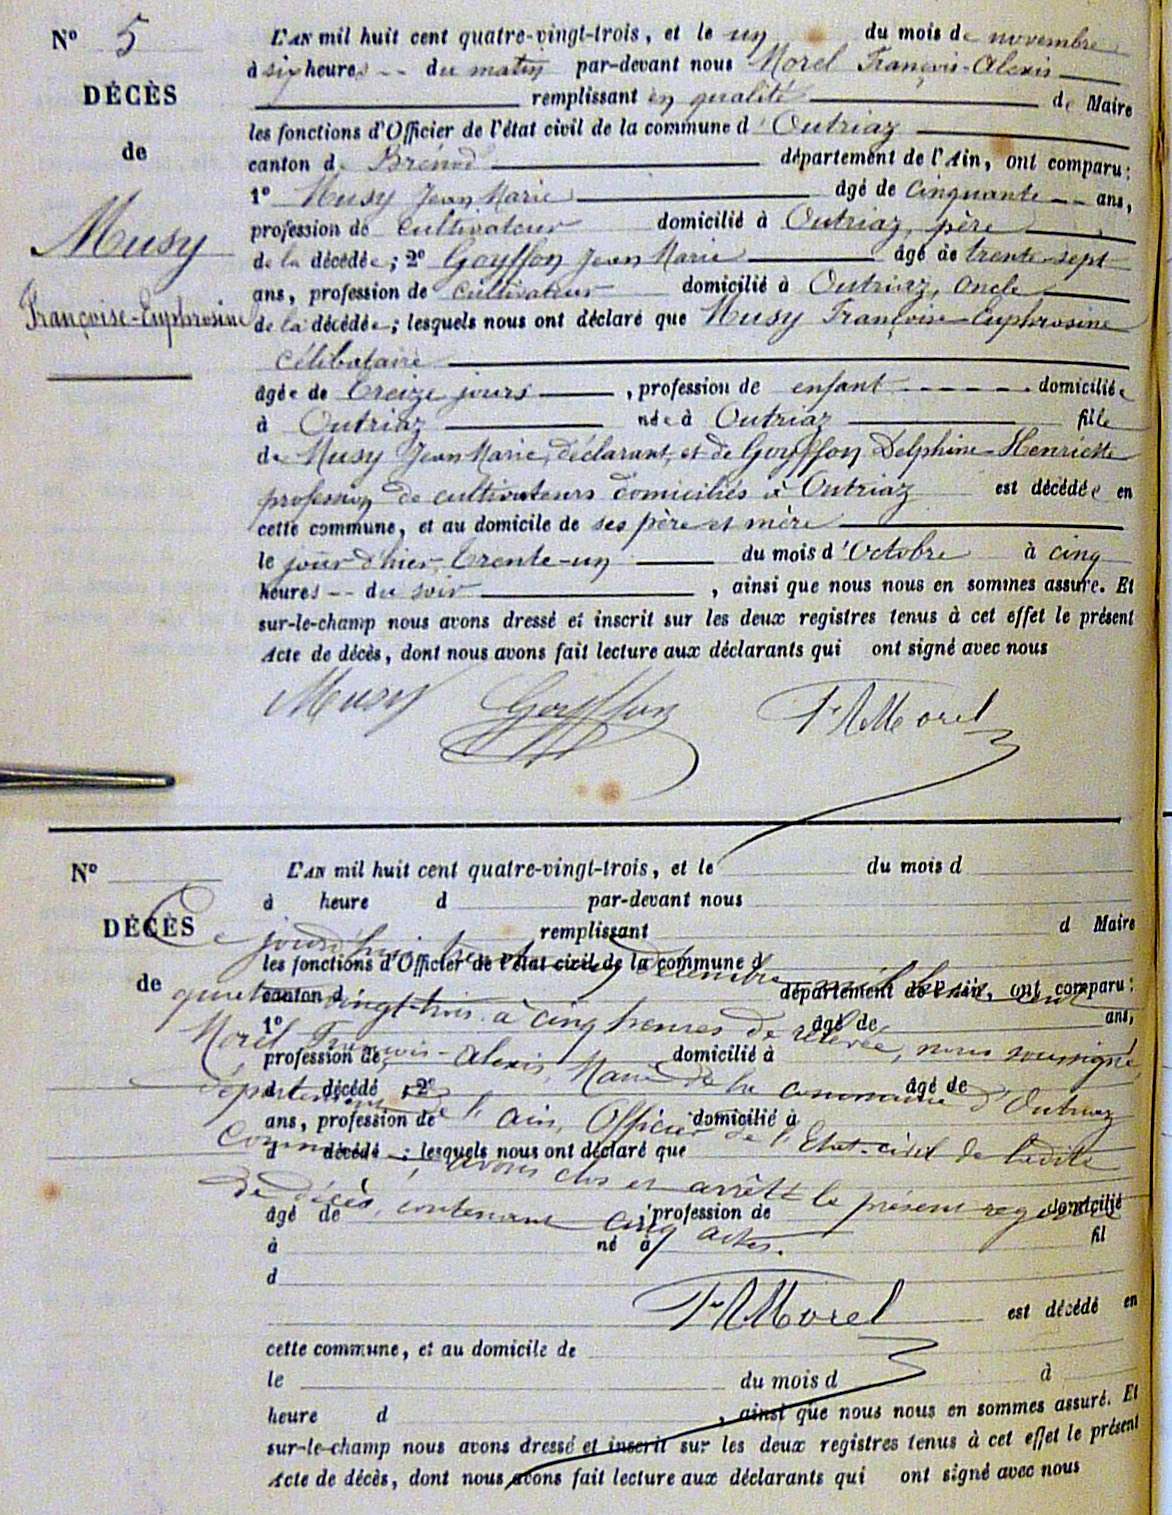 N° 5
DÉCÈS
de
Musy
Françoise-Euphrosine
L'AN mil huit cent quatre-vingt-trois, et le un du mois de novembre
à six heures -- du matin par-devant nous Morel François-Alexis
remplissant en qualité de Maire
les fonctions d'Officier de l'état civil de la commune d'Outriaz
canton de Brénod département de l'Ain, ont comparu:
1° Musy Jean Marie âgé de cinquante -- ans,
profession de cultivateur domicilié à Outriaz, père
de la décédée; 2° Goyffon Jean Marie âgé de trente-sept
ans, profession de cultivateur domicilié à Outriaz, oncle
de la décédée; lesquels nous ont déclaré que Musy Françoise-Euphrosine
célibataire
âgée de treize jours, profession de enfant - - - - - - domiciliée
à Outriaz née à Outriaz fille
de Musy Jean Marie, déclarant, et de Goyffon Delphine-Henriette
profession de cultivateurs domiciliés à Outriaz est décédée en
cette commune, et au domicile de ses père et mère
le jour d'hier trente-un du mois d'Octobre à cinq
heures -- du soir, ainsi que nous nous en sommes assuré. Et
sur-le-champ nous avons dressé et inscrit sur les deux registres tenus à cet effet le présent
Acte de décès, dont nous avons fait lecture aux déclarants qui ont signé avec nous
Musy Goyffon Fr Morel
N°
DÉCÈS
de
L'AN mil huit cent quatre-vingt-trois, et le du mois d
à heure d par-devant nous
remplissant d Maire
Ce jourd'hui trente un décembre mil huit cent
les fonctions d'Officier de l'état civil de la commune d
canton d département de l'Ain, ont comparu:
quatre vingt-trois à cinq heures de relevée, nous soussigné
1° âgé de ans,
Morel François-Alexis, Maire de la commune d'Outriaz
profession de domicilié à
d décédé ; 2° âgé de
département de l'Ain, Officier de l'Etat-civil de ladite
ans, profession de domicilié à
d décédé ; lesquels nous ont déclaré que
Commune, avons clos et arrêté le présent registre
de décès, contenant cinq actes.
âgé de , profession de domicilié
à né à fil
d
Fr Morel
est décédé en
cette commune, et au domicile de
le du mois d à
heure d , ainsi que nous nous en sommes assuré. Et
sur-le-champ nous avons dressé et inscrit sur les deux registres tenus à cet effet le présent
Acte de décès, dont nous avons fait lecture aux déclarants qui ont signé avec nous